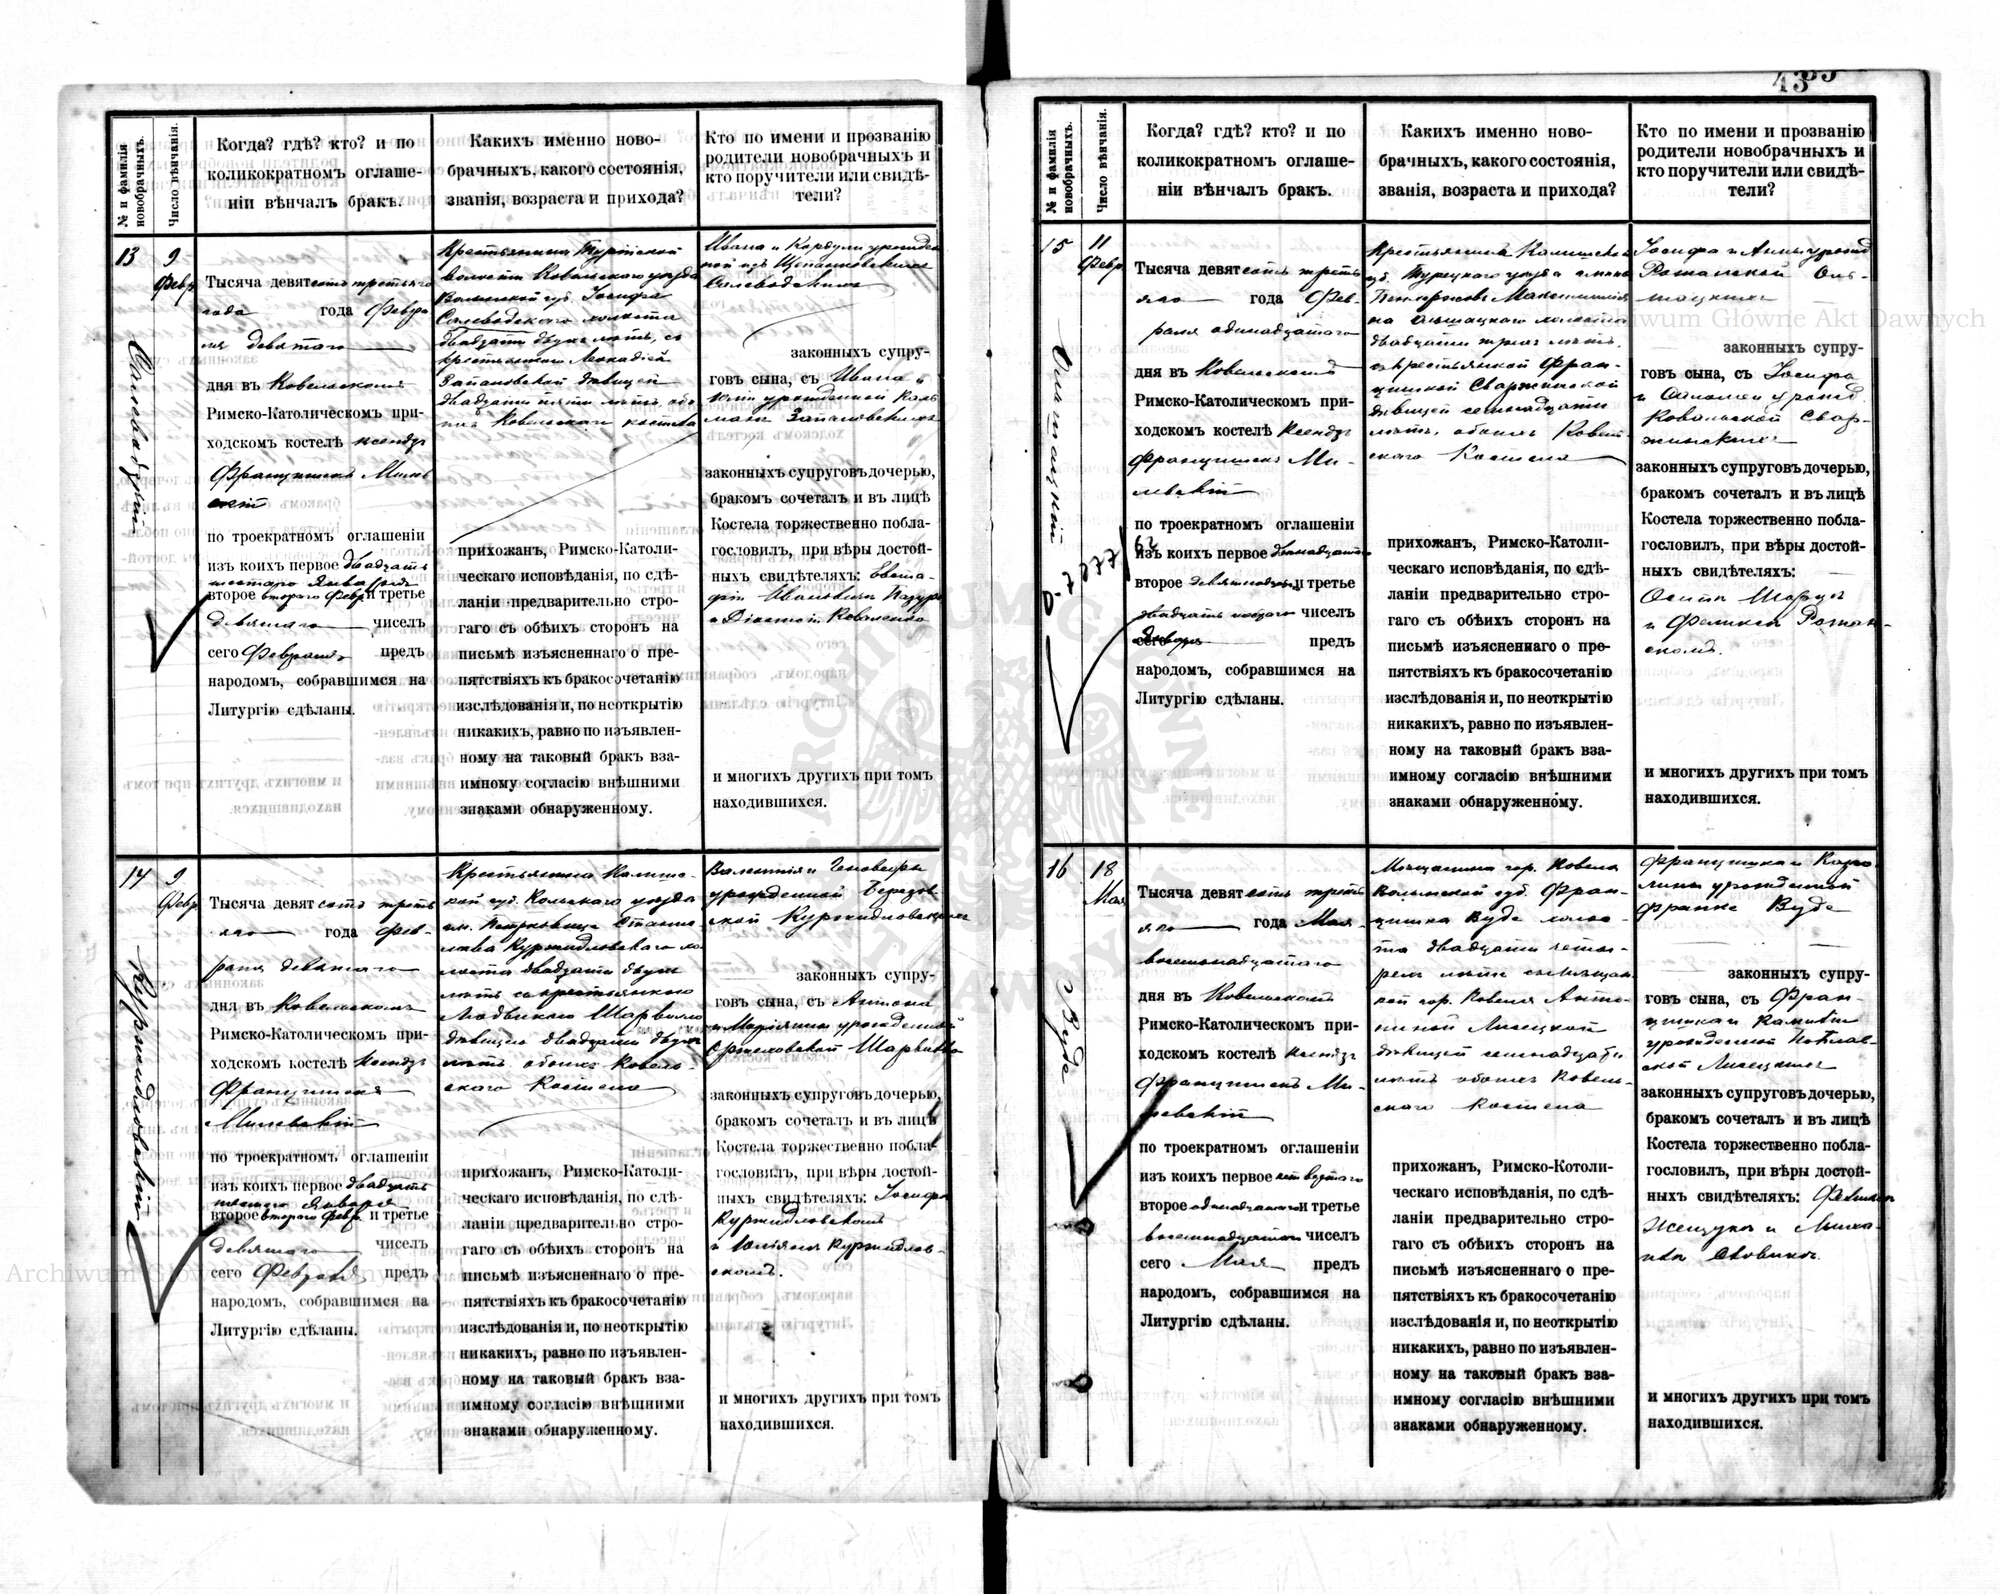 43
№ и фамилія новобрачныхъ.
Число вѣнчанія.
Когда? гдѣ? кто? и по
коликократномъ оглаше-
ніи вѣнчалъ бракъ.
Какихъ именно ново-
брачныхъ, какого состоянія,
званія, возраста и прихода?
Кто по имени и прозванію
родители новобрачныхъ и
кто поручители или свидѣ-
тели?
13
9
Февр.
Тысяча девятьсотъ третьяго
года года Февра
ля девятаго
дня въ Ковельскомъ
Римско-Католическомъ при-
ходскомъ костелѣ ксендзъ
Францишекъ
по троекратномъ оглашеніи
изъ коихъ первое двадцать
шестаго Января
второе втораго Февр. и третье
девятаго чиселъ
сего Февраля предъ
народомъ, собравшимся на
Литургію сдѣланы.
Крестьянина Турійской
волости Ковельскаго уѣзда
Волынской губ. Іосифа
холоста
двадцати двухъ лѣтъ, съ
крестьянкою
дѣвицей
двадцати пяти лѣтъ, обо-
ихъ Ковельскаго костела
прихожанъ, Римско-Католи-
ческаго исповѣданія, по сдѣ-
ланіи предварительно стро-
гаго съ обѣихъ сторонъ на
письмѣ изъясненнаго о пре-
пятствіяхъ къ бракосочетанію
изслѣдованія и, по неоткрытію
никакихъ, равно по изъявлен-
ному на таковый бракъ вза-
имному согласію внѣшними
знаками обнаруженному.
Ивана и Кордули урожден
ной изъ
законныхъ супру-
говъ сына, съ Ивана и
урожденной
законныхъ супруговъ дочерью,
бракомъ сочеталъ и въ лицѣ
Костела торжественно побла-
гословилъ, при вѣры достой-
ныхъ свидѣтеляхъ:
и многихъ другихъ при томъ
находившихся.
14
9
Февр.
Куржидловскій
Тысяча девятьсотъ треть
яго года Фев-
раля девятаго
дня въ Ковельскомъ
Римско-Католическомъ при-
ходскомъ костелѣ ксендзъ
Францишекъ
Милевскій
по троекратномъ оглашеніи
изъ коихъ первое двадцать
шестаго Января
второе втораго Февр. и третье
девятаго чиселъ
сего Февраля предъ
народомъ, собравшимся на
Литургію сдѣланы.
Крестьянина Калиш-
ской губ. Кольскаго уѣзда
Станис
лава Куржидловскаго хо-
лоста двадцати двухъ
лѣтъ съ крестьянкою
дѣвицею двадцати двухъ
лѣтъ обоихъ Ковель-
скаго Костела
прихожанъ, Римско-Католи-
ческаго исповѣданія, по сдѣ-
ланіи предварительно стро-
гаго съ обѣихъ сторонъ на
письмѣ изъясненнаго о пре-
пятствіяхъ къ бракосочетанію
изслѣдованія и, по неоткрытію
никакихъ, равно по изъявлен-
ному на таковый бракъ вза-
имному согласію внѣшними
знаками обнаруженному.
Валентія и Геновефы
урожденной
законныхъ супру-
говъ сына, съ Антона
и Маріанны урожденной
законныхъ супруговъ дочерью,
бракомъ сочеталъ и въ лицѣ
Костела торжественно побла-
гословилъ, при вѣры достой-
ныхъ свидѣтеляхъ: Іосифѣ
Куржидловскомъ
и Юліанѣ Куржидлов-
скомъ.
и многихъ другихъ при томъ
находившихся.
№ и фамилія новобрачныхъ.
Число вѣнчанія.
Когда? гдѣ? кто? и по
коликократномъ оглаше-
ніи вѣнчалъ бракъ.
Какихъ именно ново-
брачныхъ, какого состоянія,
званія, возраста и прихода?
Кто по имени и прозванію
родители новобрачныхъ и
кто поручители или свидѣ-
тели?
15
11
Февр
Тысяча девятьсотъ треть
яго года Фев-
раля одинадцатаго
дня въ Ковельскомъ
Римско-Католическомъ при-
ходскомъ костелѣ Ксендзъ
Францишекъ Ми-
левскій
по троекратномъ оглашеніи
изъ коихъ первое
второе и третье
чиселъ
Января предъ
народомъ, собравшимся на
Литургію сдѣланы.
Крестьянина Калишской
губ. Турецкаго уѣзда
Максиміліа
на холоста
двадцати трехъ лѣтъ,
съ крестьянкой Фран-
цишкой Сваржинской
дѣвицей семнадцати
лѣтъ, обоихъ Ковель-
скаго Костела
прихожанъ, Римско-Католи-
ческаго исповѣданія, по сдѣ-
ланіи предварительно стро-
гаго съ обѣихъ сторонъ на
письмѣ изъясненнаго о пре-
пятствіяхъ къ бракосочетанію
изслѣдованія и, по неоткрытію
никакихъ, равно по изъявлен-
ному на таковый бракъ вза-
имному согласію внѣшними
знаками обнаруженному.
Іосифа и Анны урожд
законныхъ супру-
говъ сына, съ Іосифа
и Саломеи урожд.
Ковальской Свар-
жинскихъ
законныхъ супруговъ дочерью,
бракомъ сочеталъ и въ лицѣ
Костела торжественно побла-
гословилъ, при вѣры достой-
ныхъ свидѣтеляхъ:
и Феликсѣ Роман-
скомъ.
и многихъ другихъ при томъ
находившихся.
16
18
Мая
Вуде
Тысяча девятьсотъ треть
яго года Мая
восемнадцатаго
дня въ Ковельскомъ
Римско-Католическомъ при-
ходскомъ костелѣ ксендзъ
Францишекъ Ми-
левскій
по троекратномъ оглашеніи
изъ коихъ первое четвертаго
второе одинадцатаго и третье
восемнадцатаго чиселъ
сего Мая предъ
народомъ, собравшимся на
Литургію сдѣланы.
Мѣщанина гор. Ковеля
Волынской губ. Фран-
цишка Вуде холос-
та двадцати четы-
рехъ лѣтъ съ мѣщан
кой гор. Ковеля Анто-
ниной Лисецкой
дѣвицей семнадцати
лѣтъ обоихъ Ковель-
скаго костела
прихожанъ, Римско-Котоли-
ческаго исповѣданія, по сдѣ-
ланіи предварительно стро-
гаго съ обѣихъ сторонъ на
письмѣ изъясненнаго о пре-
пятствіяхъ къ бракосочетанію
изслѣдованія и, по неоткрытію
никакихъ, равно по изъявлен-
ному на таковый бракъ вза-
имному согласію внѣшними
знаками обнаруженному.
Францишка и Каро-
лины урожденной
Франке Вуде
законныхъ супру-
говъ сына, съ Фран-
цишка и Камиліи
урожденной
Лисецкихъ
законныхъ супруговъ дочерью,
бракомъ сочеталъ и въ лицѣ
Костела торжественно побла-
гословилъ, при вѣры достой-
ныхъ свидѣтеляхъ:
и многихъ другихъ при томъ
находившихся.
Archiwum Główne Akt Dawnych
Archiwum Główne Akt Dawnych
ARCHIWUM GŁÓWNE AKT DAWNYCH